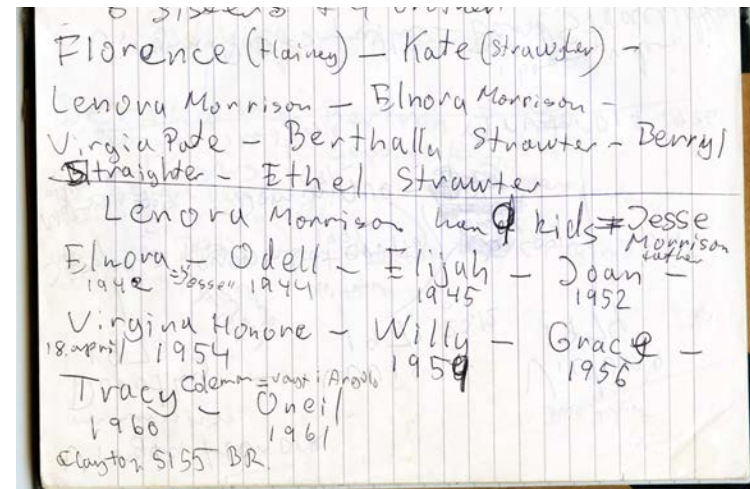 6 sisters + 4 brother
Florence (Hainey) – Kate (Strawter) –
Lenora Morrison – Elnora Morrison –
Virgia Pate – Berthalla Strawter – Berryl
Straighter – Ethel Strawter
Lenora Morrison han 9 kids = Jesse
Morrison
father
Elnora – Odell – Elijah – Joan –
1942 = "Jesse" 1944 1945 1952
Virgina Honore – Willy – Grace –
18. april 1954 1959 1956
Tracy Colemn = vagt i Angola
– Oneil
1960 1961
Clayton 5155 BR.